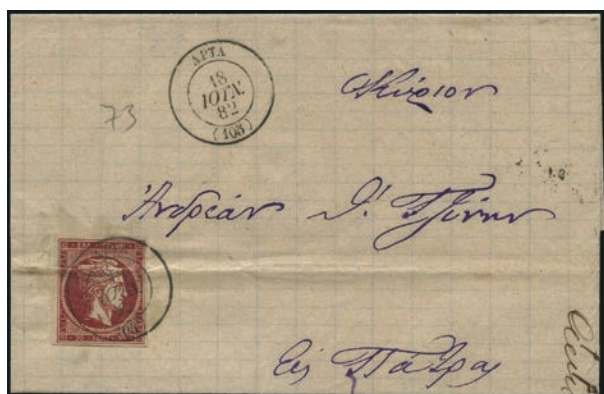 ΑΡΤΑ
18
ΙΟΥΝ.
82
(103)
73
Κύριον
Ἀνδρέαν Θ. Τζίνην
Εἰς Πάτρας